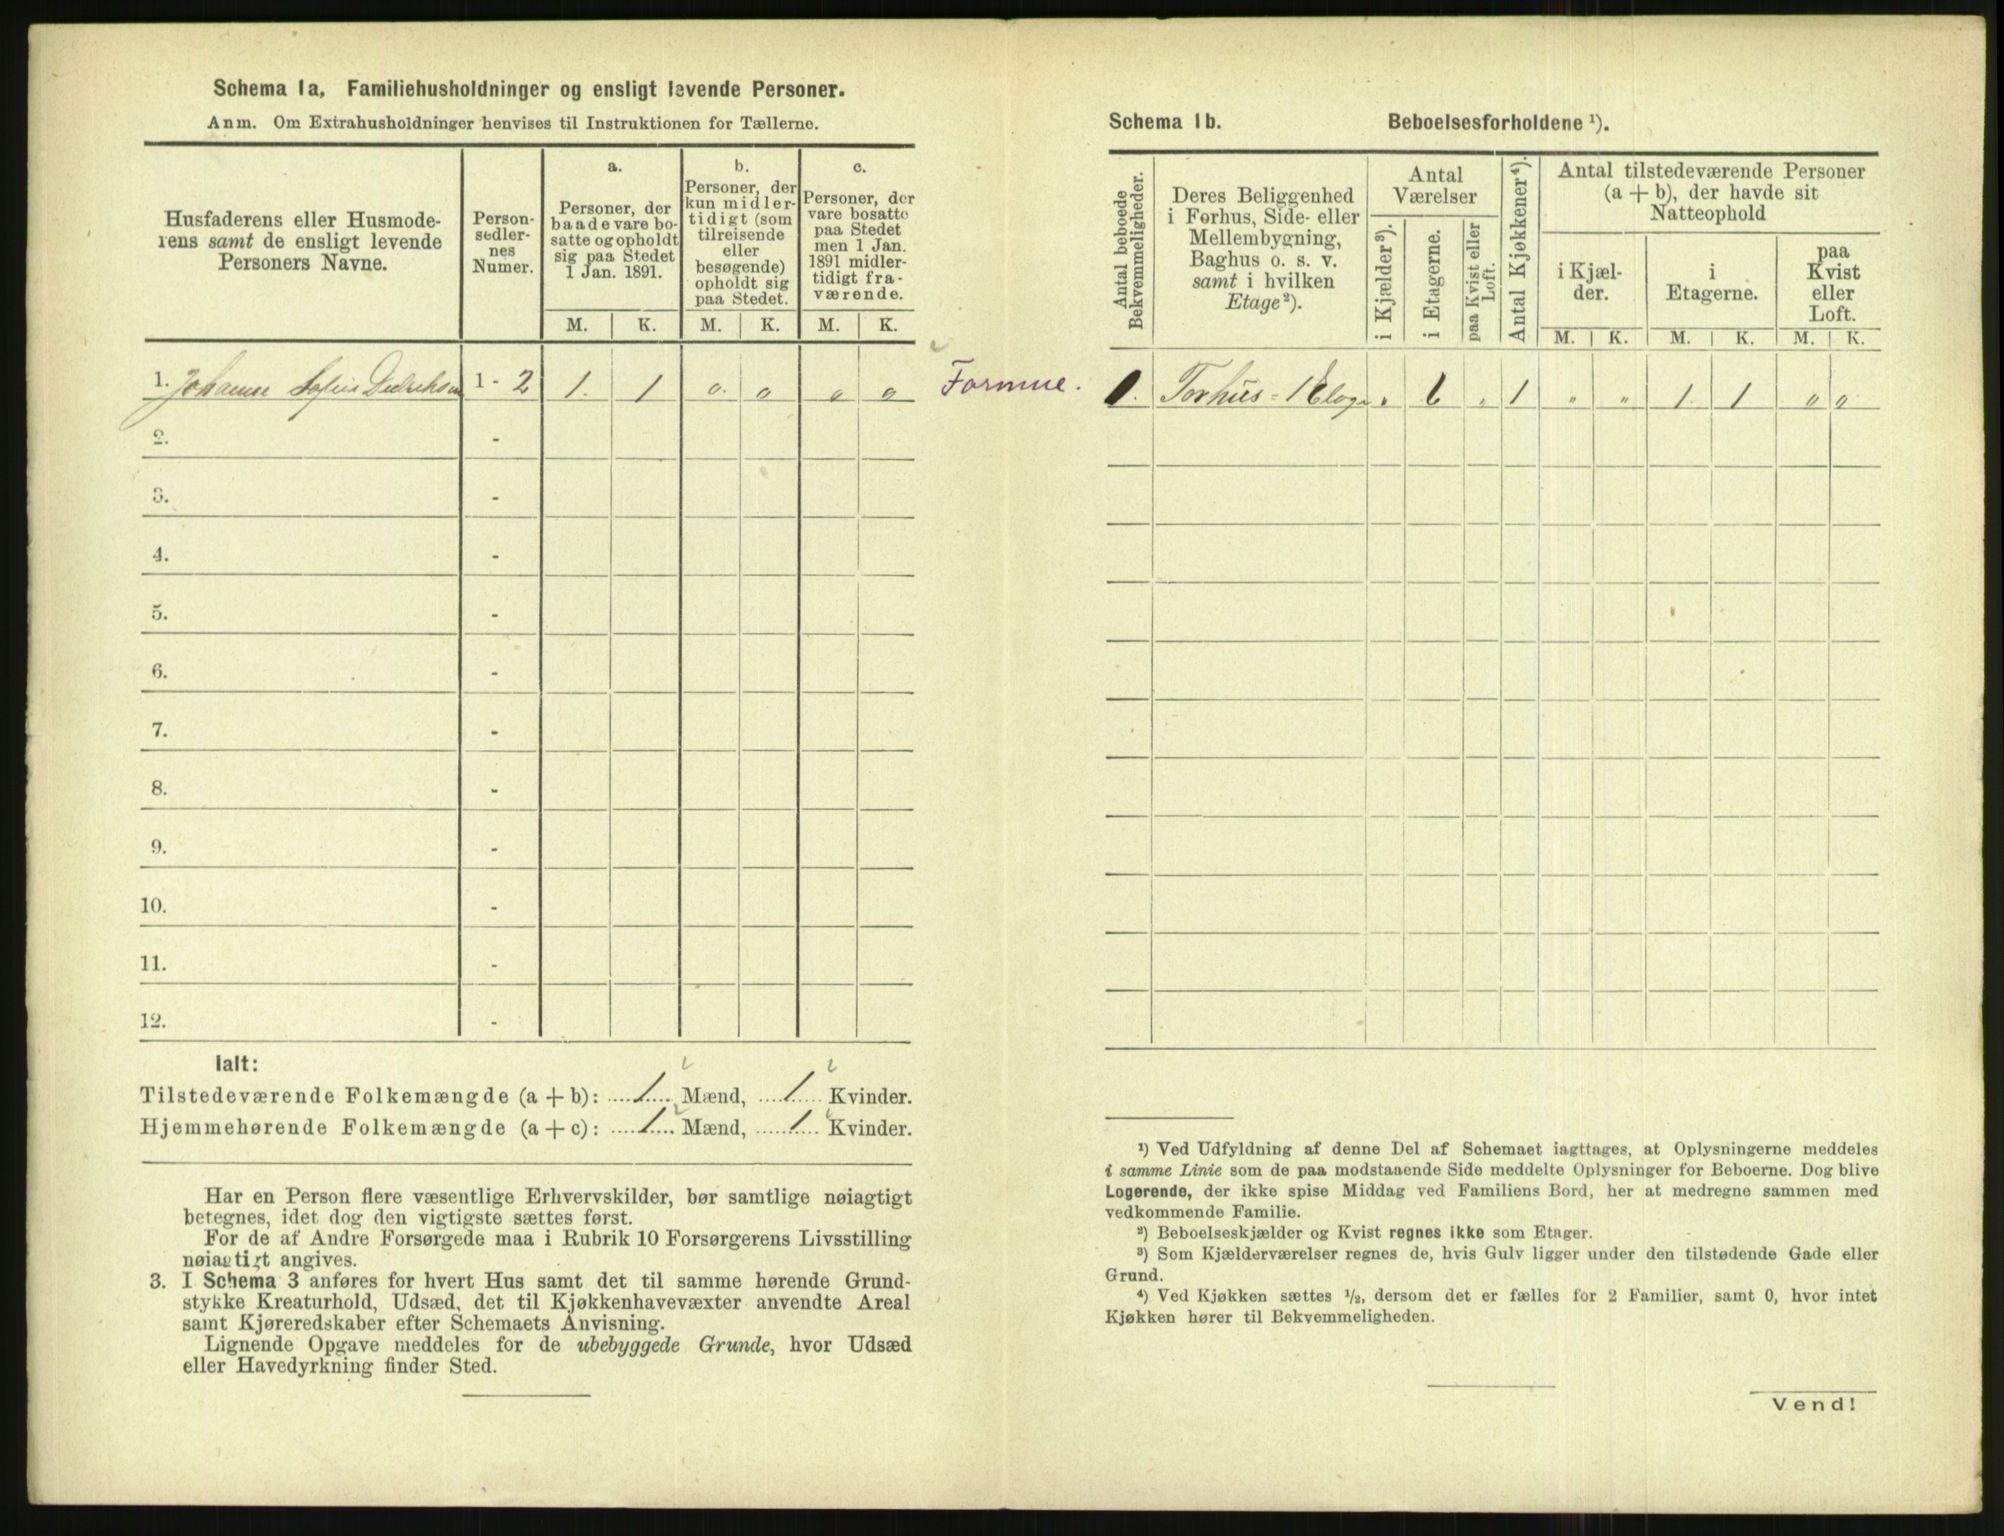 Schema 1a. Familiehusholdninger og ensligt levende Personer.
Anm. Om Extrahusholdninger henvises til Instruktionen for Tællerne.
Husfaderens eller Husmode-
rens samt de ensligt levende
Personers Navne.
Person-
sedler-
nes
Numer.
a.
Personer, der
baade vare bo-
satte og opholdt
sig paa Stedet
1 Jan. 1891.
M. K.
b.
Personer, der
kun midler-
tidigt (som
tilreisende
eller
besøgende)
opholdt sig
paa Stedet.
M. K.
c.
Personer, der
vare bosatte
paa Stedet
men 1 Jan.
1891 midler-
tidigt fra-
værende.
M. K.
1. Johanne Sofie Didriksen 1 - 2 1. 1 0. 0 0 0 Formue.
2. -
3. -
4. -
5. -
6. -
7. -
8. -
9. -
10. -
11. -
12. -
Ialt:
Tilstedeværende Folkemængde (a + b): 1 Mænd, 1 Kvinder.
Hjemmehørende Folkemængde (a + c): 1 Mænd, 1 Kvinder.
Har en Person flere væsentlige Erhvervskilder, bør samtlige nøiagtigt
betegnes, idet dog den vigtigste sættes først.
For de af Andre Forsørgede maa i Rubrik 10 Forsørgerens Livsstilling
nøiagtigt angives.
3. I Schema 3 anføres for hvert Hus samt det til samme hørende Grund-
stykke Kreaturhold, Udsæd, det til Kjøkkenhavevæxter anvendte Areal
samt Kjøreredskaber efter Schemaets Anvisning.
Lignende Opgave meddeles for de ubebyggede Grunde, hvor Udsæd
eller Havedyrkning finder Sted.
Schema 1b. Beboelsesforholdene ¹).
Antal beboede
Bekvemmeligheder.
Deres Beliggenhed
i Forhus, Side- eller
Mellembygning,
Baghus o. s. v.
samt i hvilken
Etage²).
Antal
Værelser
i Kjælder³).
i Etagerne.
paa Kvist eller
Loft.
Antal Kjøkkener⁴).
Antal tilstedeværende Personer
(a + b), der havde sit
Natteophold
i Kjæl-
der.
i
Etagerne.
paa
Kvist
eller
Loft.
M. K. M. K. M. K.
1. Forhus - 1 Etage " 6 " 1 " " 1 1 " "
¹) Ved Udfyldning af denne Del af Schemaet iagttages, at Oplysningerne meddeles
i samme Linie som de paa modstaaende Side meddelte Oplysninger for Beboerne. Dog blive
Logerende, der ikke spise Middag ved Familiens Bord, her at medregne sammen med
vedkommende Familie.
²) Beboelseskjælder og Kvist regnes ikke som Etager.
³) Som Kjælderværelser regnes de, hvis Gulv ligger under den tilstødende Gade eller
Grund.
⁴) Ved Kjøkken sættes ½, dersom det er fælles for 2 Familier, samt 0, hvor intet
Kjøkken hører til Bekvemmeligheden.
Vend!